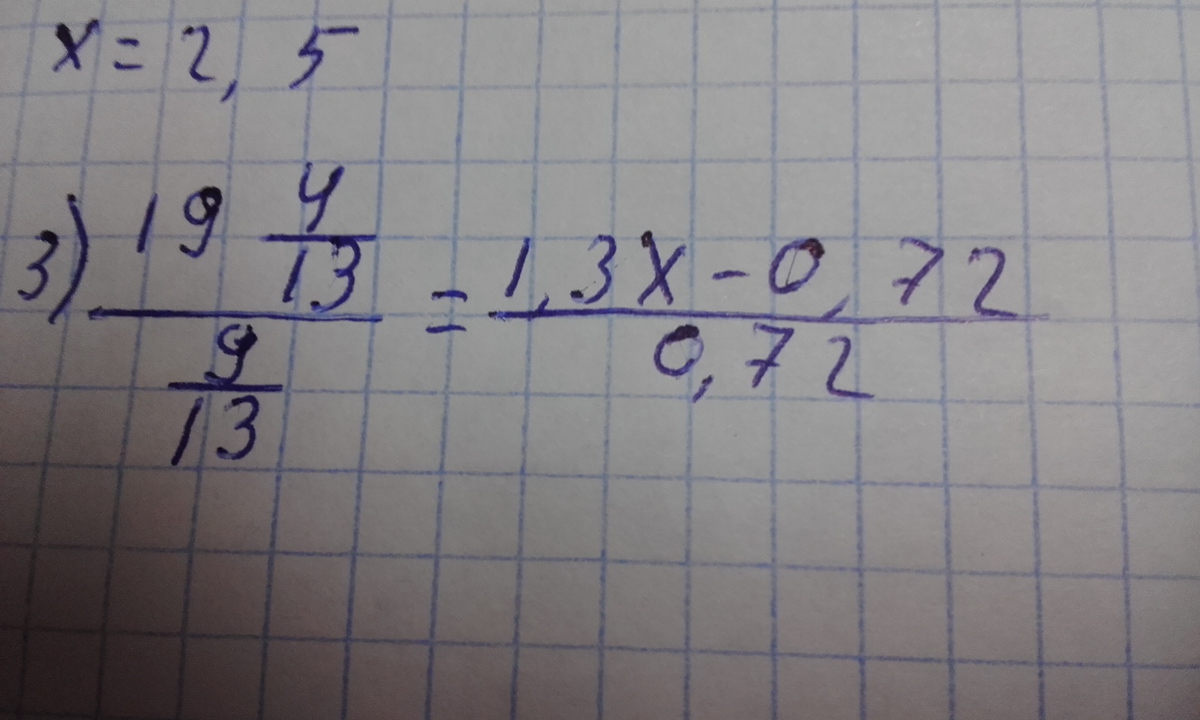 x = 2,5
3) (19 4/13)/(9/13) = (1,3x - 0,72)/(0,72)